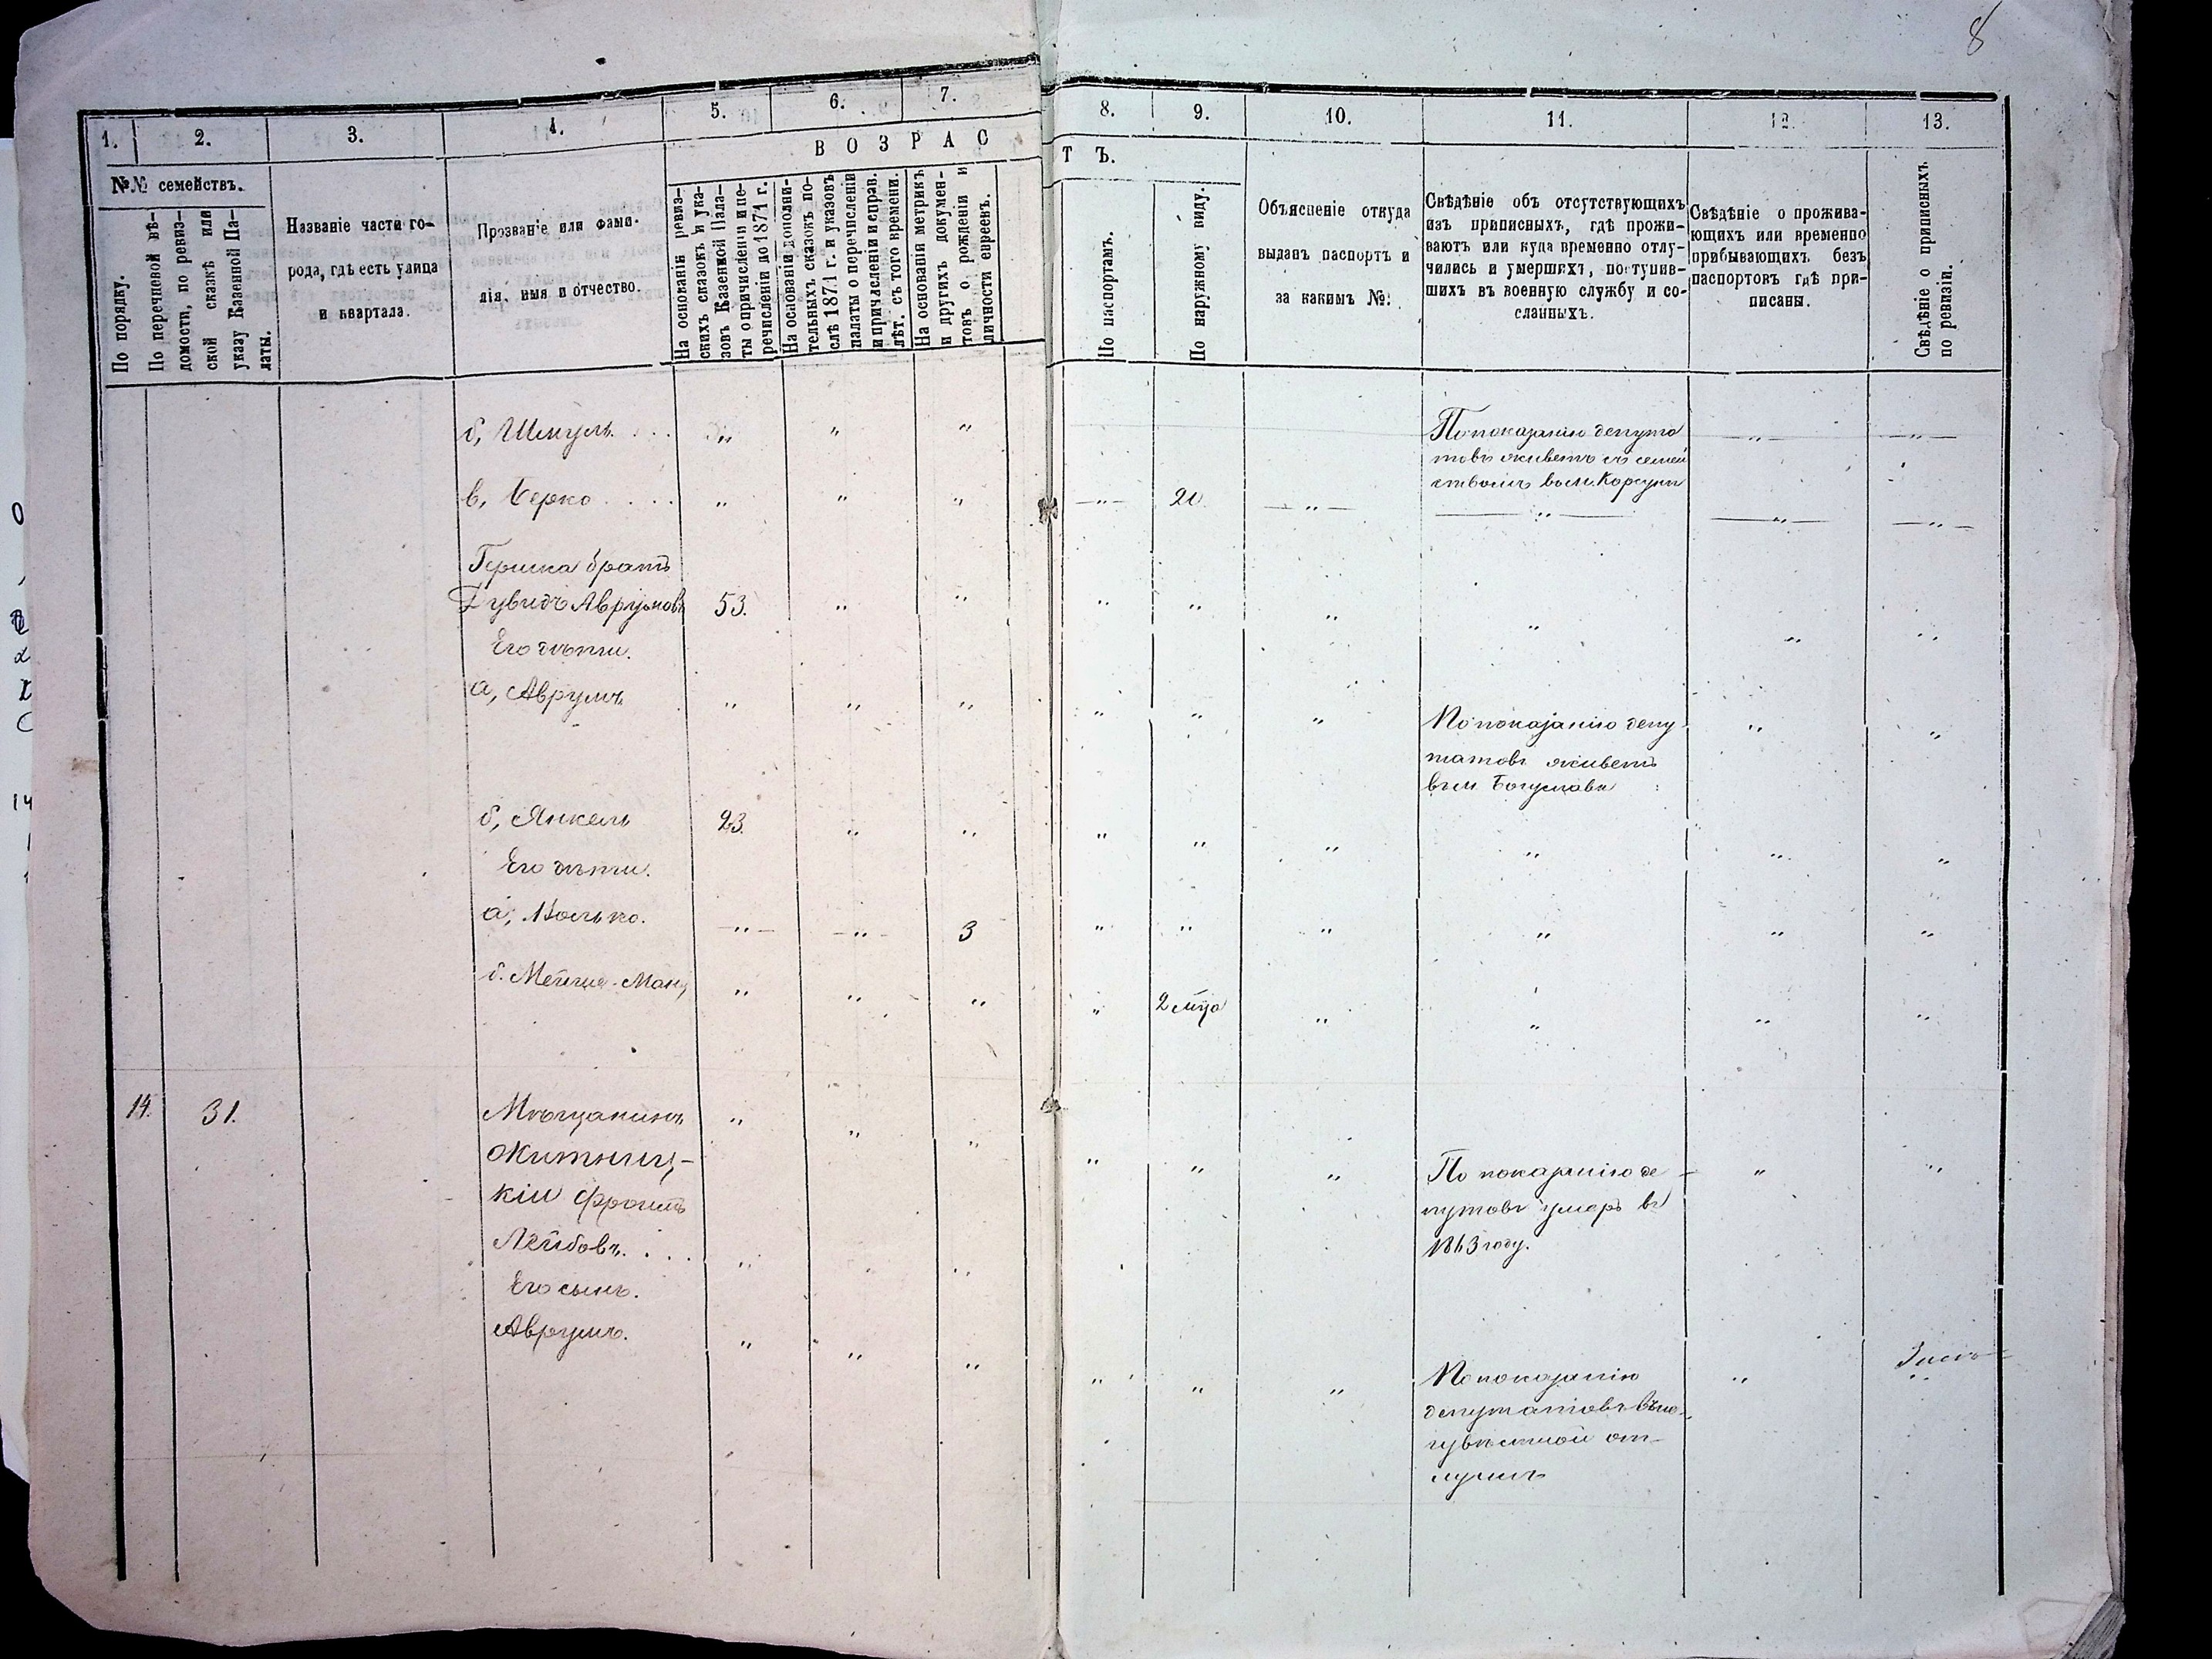 8
1. 2. 3. 4. 5. 6. 7. 8. 9. 10. 11. 12. 13.
№№ семействъ.
По порядку.
По перечневой вѣ-
домости, по ревиз-
ской сказкѣ или
указу Казенной Па-
латы.
Названіе части го-
рода, гдѣ есть улица
и квартала.
Прозваніе или фами-
лія, имя и отчество.
ВОЗРАСТЪ.
На основаніи ревиз-
скихъ сказокъ и ука-
зовъ Казенной Пала-
ты о причисленіи и пе-
речисленіи до 1871 г.
На основаніи дополни-
тельныхъ сказокъ по-
слѣ 1871 г. и указовъ
палаты о перечисленіи
и причисленіи и справ.
лѣт. съ того времени.
На основаніи метрикъ
и другихъ докумен-
товъ о рожденіи и
личности евреевъ.
По паспортамъ.
По наружному виду.
Объясненіе откуда
выданъ паспортъ и
за какимъ №:
Свѣдѣніе объ отсутствующихъ
изъ приписныхъ, гдѣ прожи-
ваютъ или куда временно отлу-
чились и умершихъ, поступив-
шихъ въ военную службу и со-
сланныхъ.
Свѣдѣніе о прожива-
ющихъ или временно
прибывающихъ безъ
паспортовъ гдѣ при-
писаны.
Свѣдѣніе о приписныхъ
по ревизіи.
б, Шмуль. . . . „ „ „
По показанію депута
товъ живетъ съ семей
ствомъ въ м. Корсуни
в, Берко . . . . „ „ „ „ 20 „ „ „ „
Гершка братъ
Дувидъ Аврумовъ 53. „ „ „ „ „ „ „ „
Его дѣти.
а, Аврумъ „ „ „ „ „ „
По показанію депу-
татовъ живетъ
въ м. Богуславѣ
„ „
б, Янкель 23. „ „ „ „ „ „ „ „
Его дѣти.
а, Волько. „ „ 3 „ „ „ „ „ „
б. „ „ „ „ 2 мѣца „ „ „ „
14. 31.
Мѣщанинъ
Житниц-
кій Фроимъ
Лейбовъ. . . .
„ „ „ „ „ „
По показанію де
путовъ умеръ въ
1863 году.
„ „
Его сынъ.
Аврумъ. „ „ „ „ „ „
По показанію
депутатовъ въ не-
звѣстной от-
лучкѣ
„ „